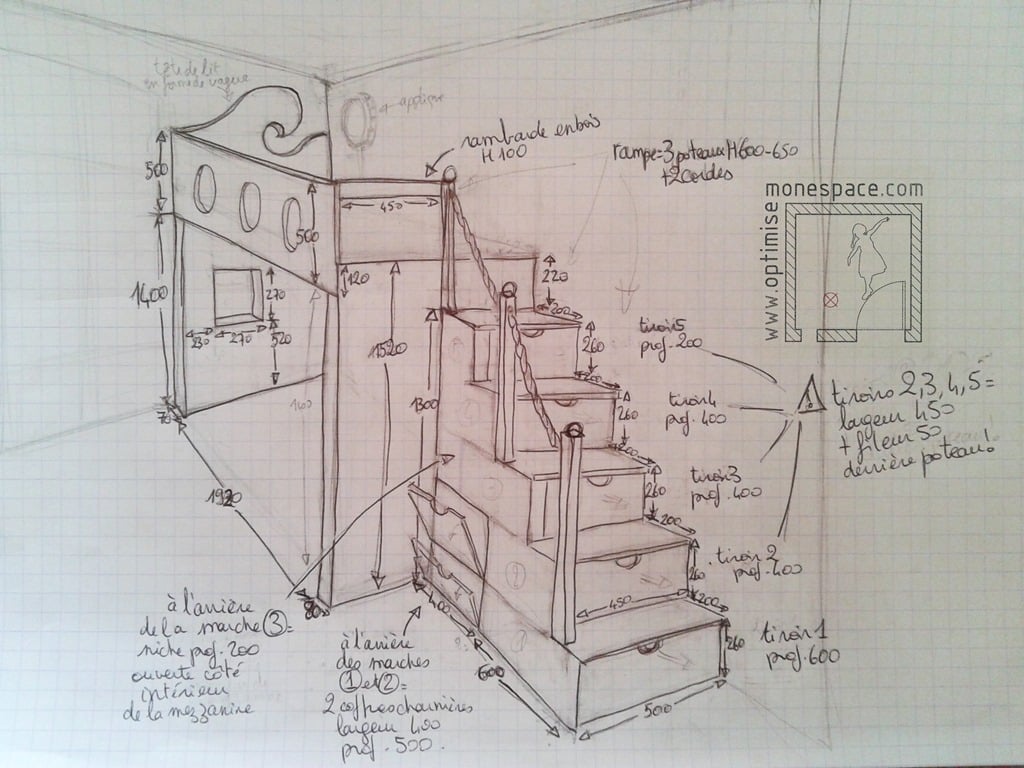 tête de lit
en forme de vague
applique
rambarde en bois
H 100
rampe = 3 poteaux H 600-650
+ 2 cordes
monespace.com
www.optimise
500
450
500
1400
270
230
270
520
120
1520
1300
220
200
260
260
260
200
260
200
260
450
500
600
400
70
1920
80
tiroir 5
prof. 200
tiroir 4
prof. 400
tiroir 3
prof. 400
tiroir 2
prof. 400
tiroir 1
prof. 600
tiroirs 2, 3, 4, 5 =
largeur 450
+ fileur 50
derrière poteau!
à l'arrière
de la marche ③ =
niche prof. 200
ouverte côté
intérieur
de la mezzanine
à l'arrière
des marches
① et ② =
2 coffres charnières
largeur 400
prof. 500.